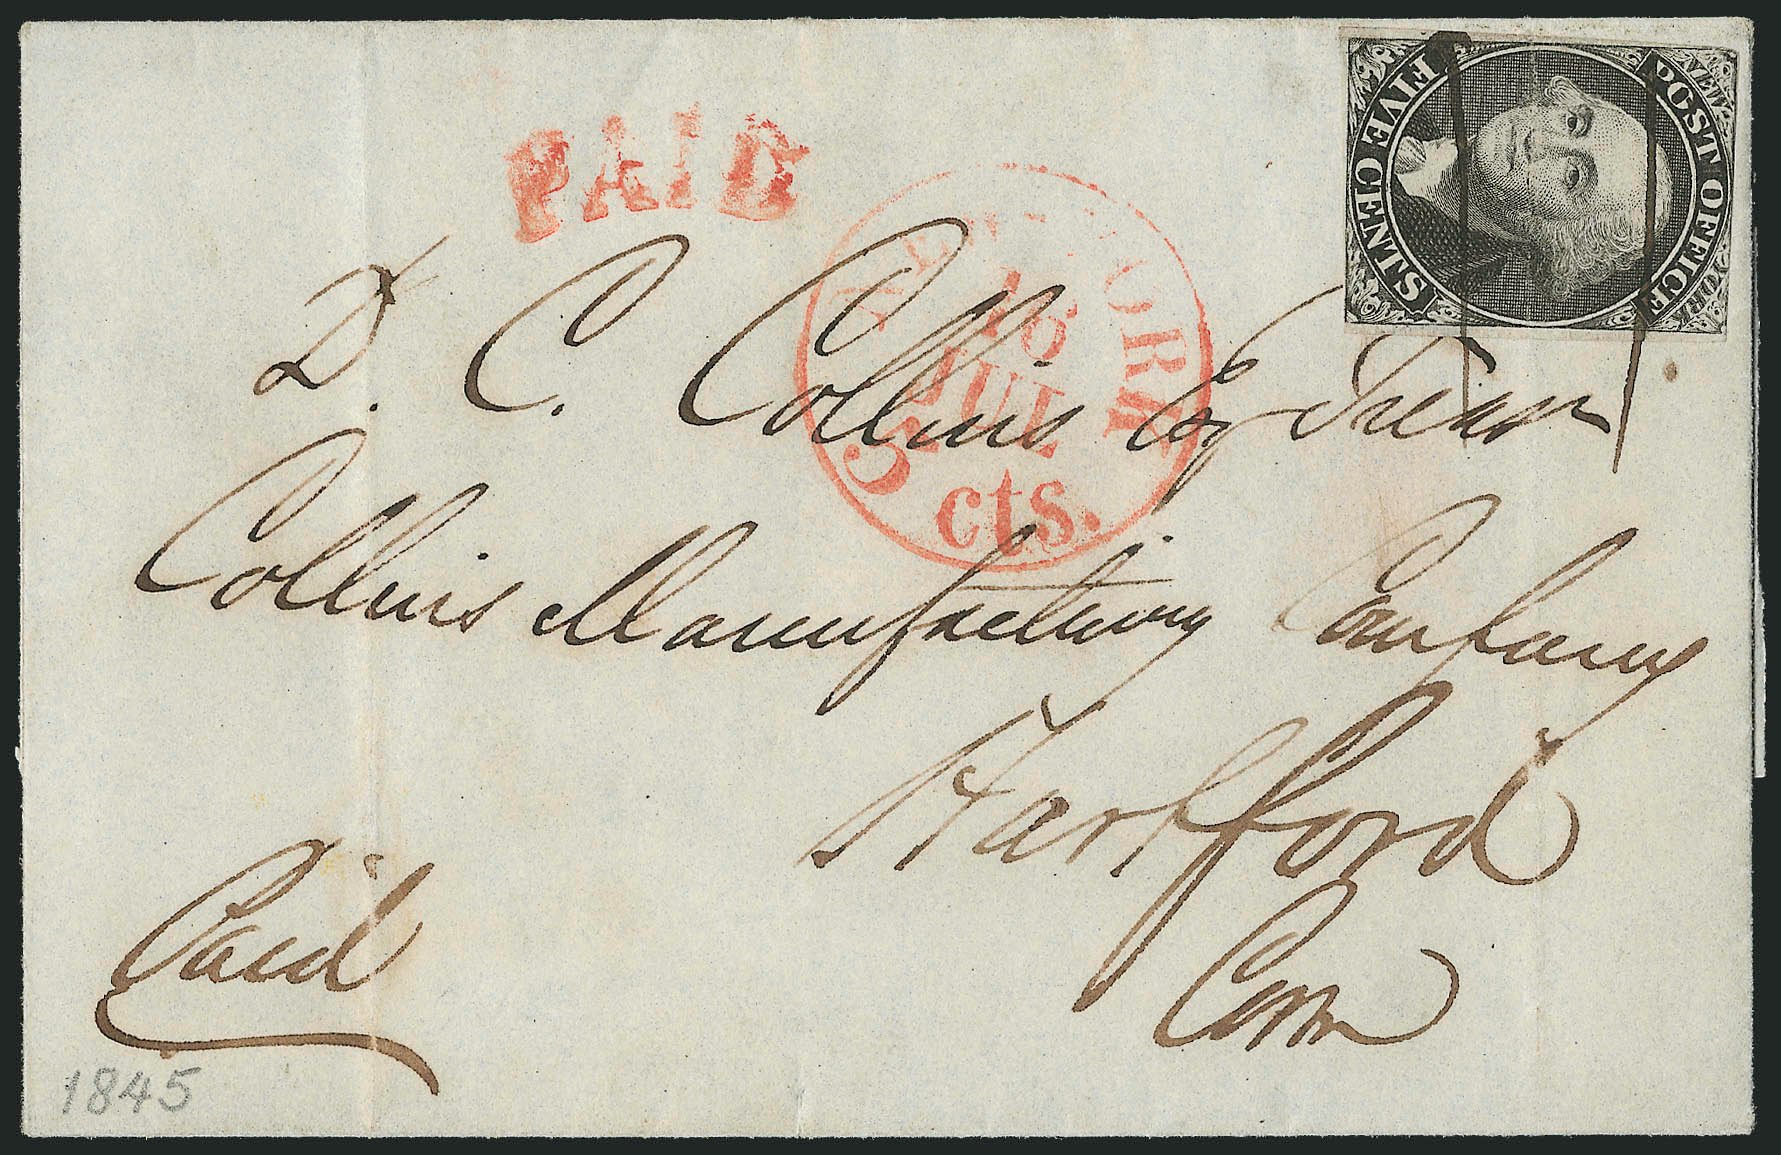 PAID
NEW-YORK
16
JUL
5 cts.
POST OFFICE
FIVE CENTS
D. C. Collins Esq Treasr
Collins Manufacturing Company
Hartford
Conn
Paid
1845